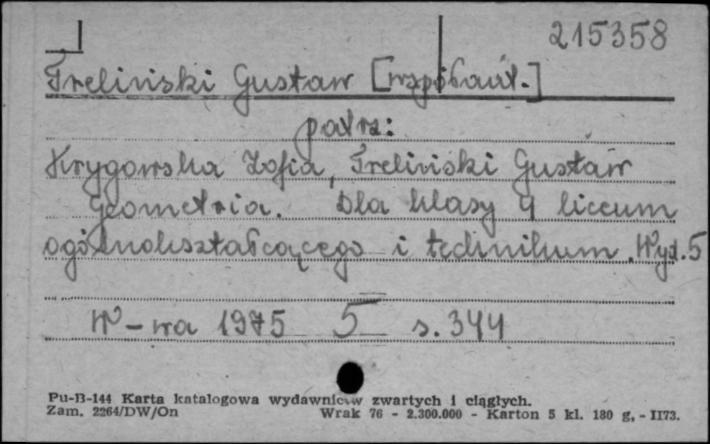 215358
Treliński Gustaw [współaut.]
patrz:
Krygowska Zofia, Treliński Gustaw
Geometria. Dla klasy 4 liceum
ogólnokształcącego i technikum. Wyd. 5
W-wa 1975 5 s. 344
Pu-B-144 Karta katalogowa wydawnictw zwartych i ciągłych.
Zam. 2264/DW/On Wrak 76 - 2.300.000 - Karton 5 kl. 180 g, - II73.